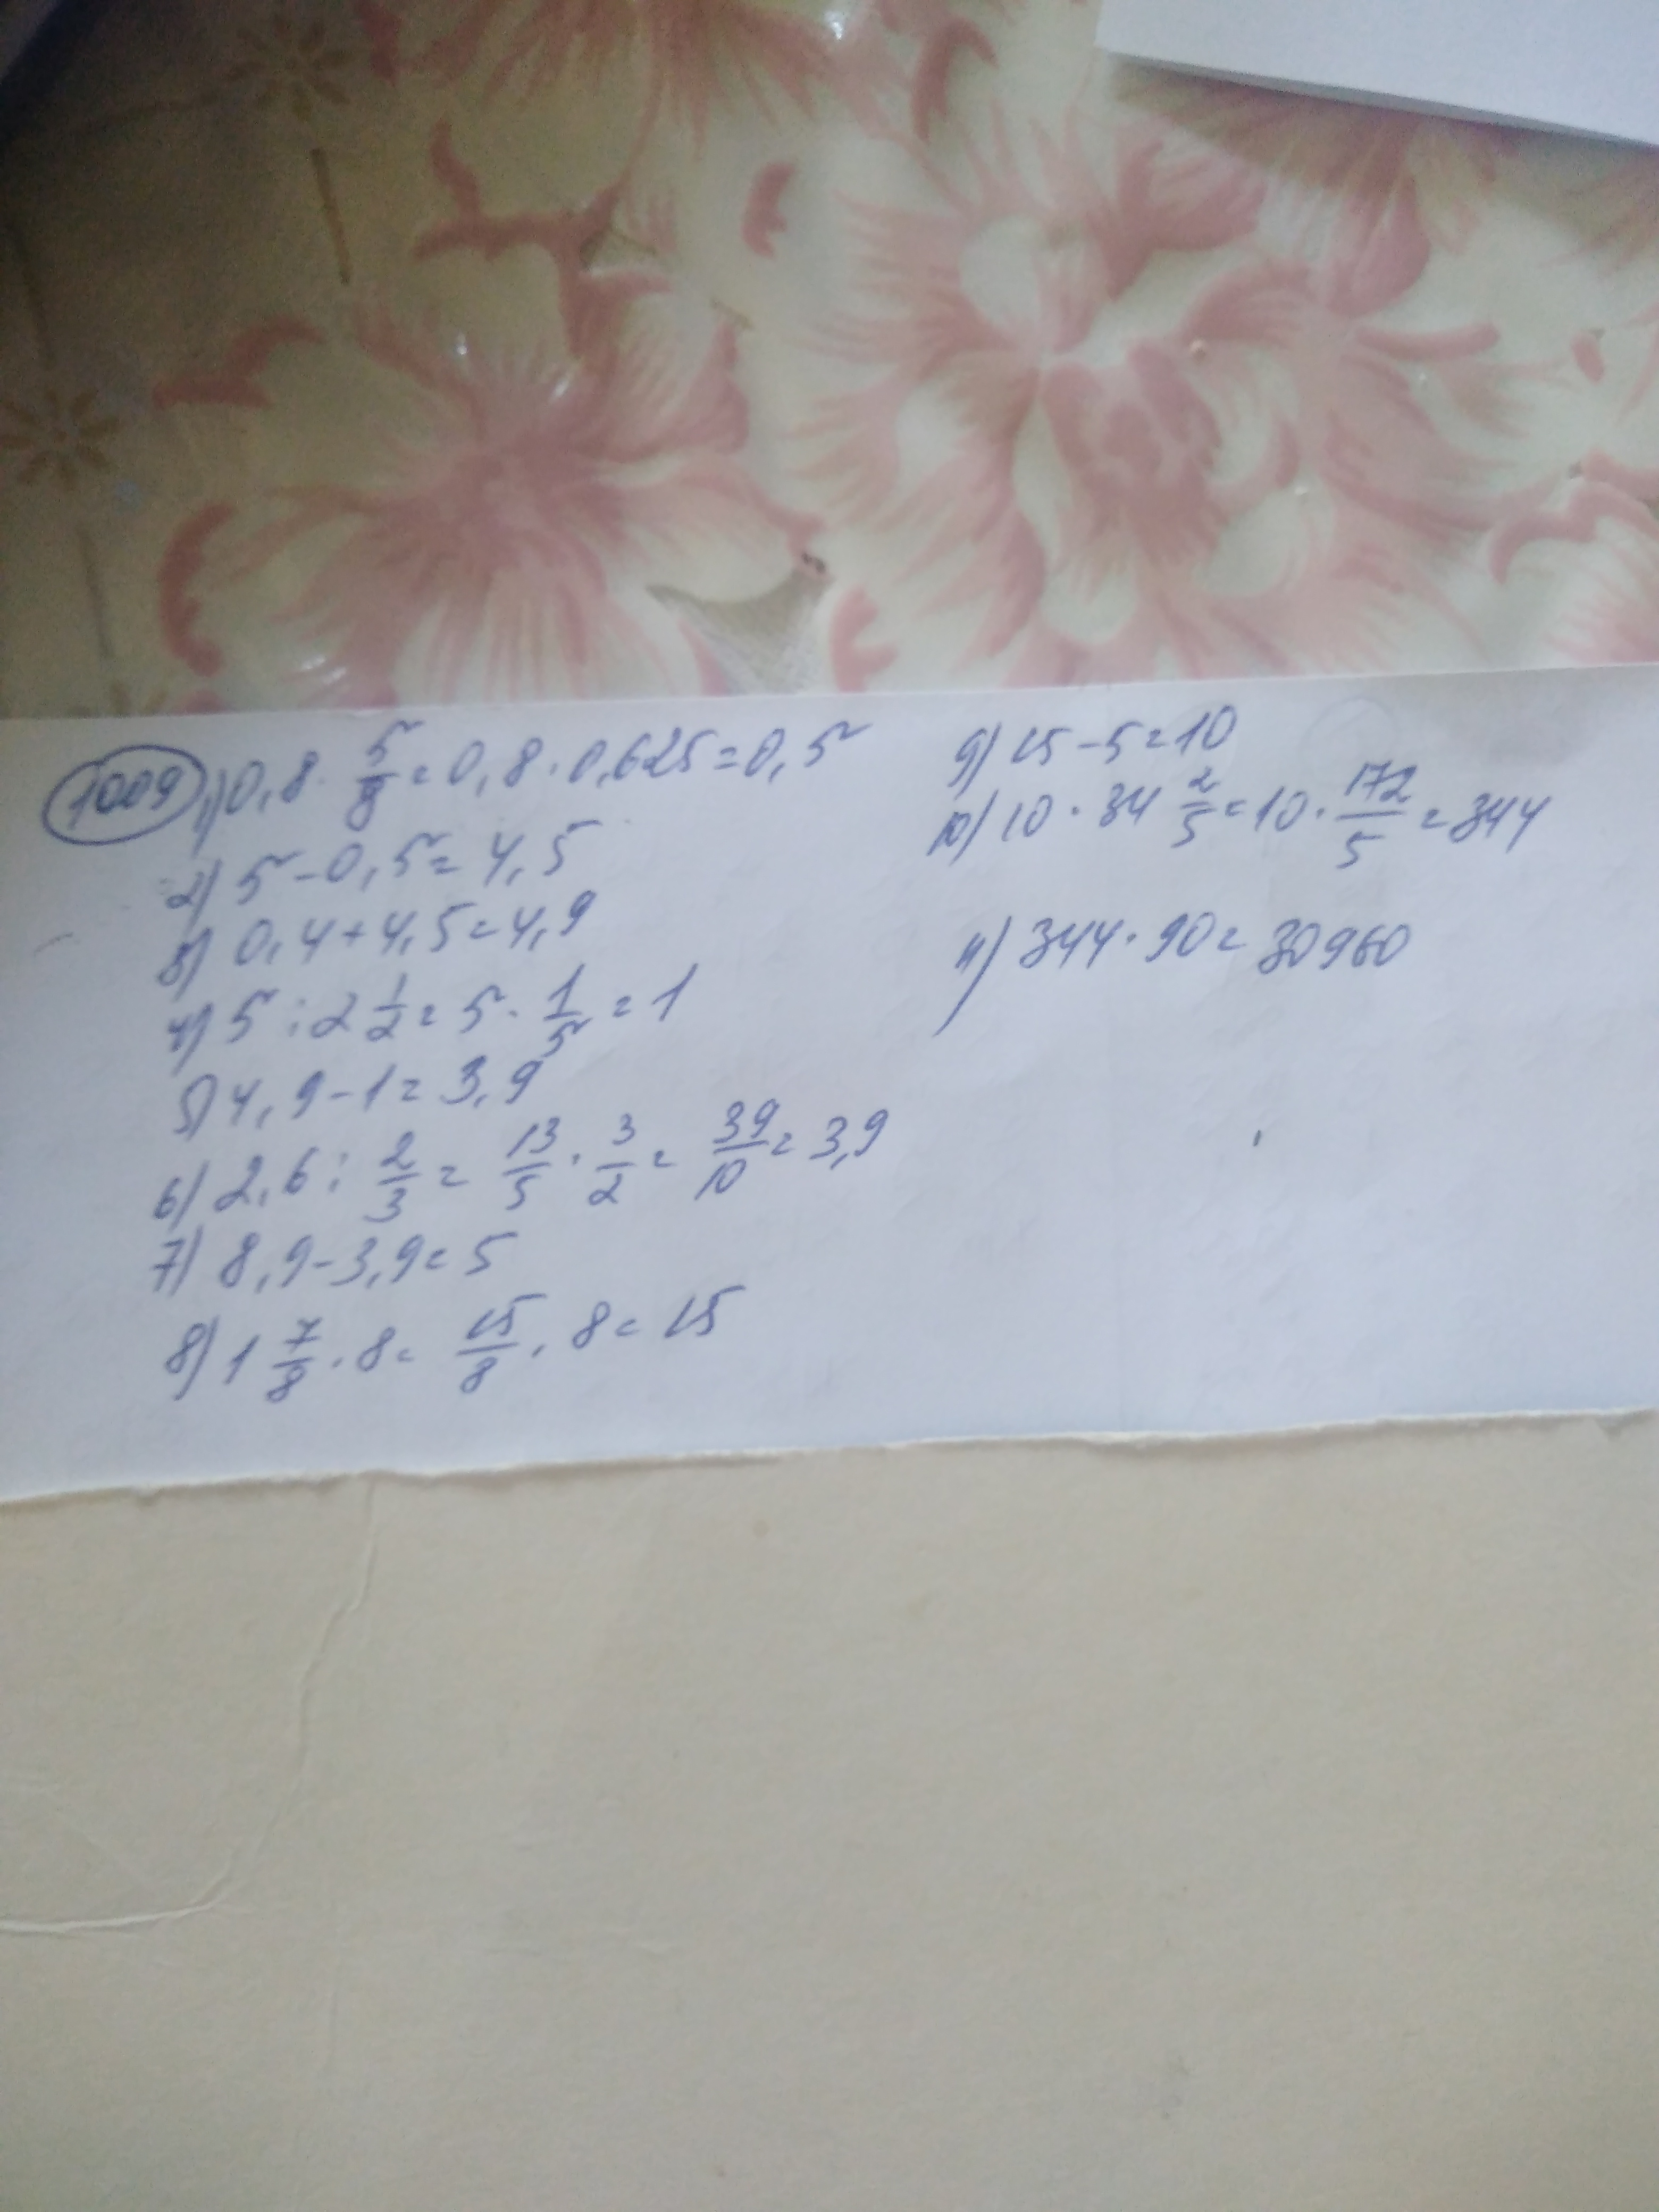 1009 1) 0,8 · 5/8 = 0,8 · 0,625 = 0,5
2) 5 - 0,5 = 4,5
3) 0,4 + 4,5 = 4,9
4) 5 : 2 1/2 = 5 · 1/5 = 1
5) 4,9 - 1 = 3,9
6) 2,6 : 2/3 = 13/5 · 3/2 = 39/10 = 3,9
7) 8,9 - 3,9 = 5
8) 1 7/8 · 8 = 15/8 · 8 = 15
9) 15 - 5 = 10
10) 10 · 34 2/5 = 10 · 172/5 = 344
11) 344 · 90 = 30960